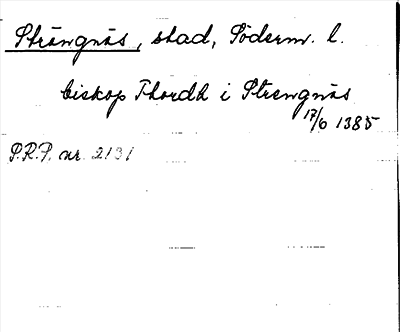 Strängnäs, stad, Söderm. l.
biskop Thordh i Strengnäs
17/6 1385
S.R.P. nr. 2131